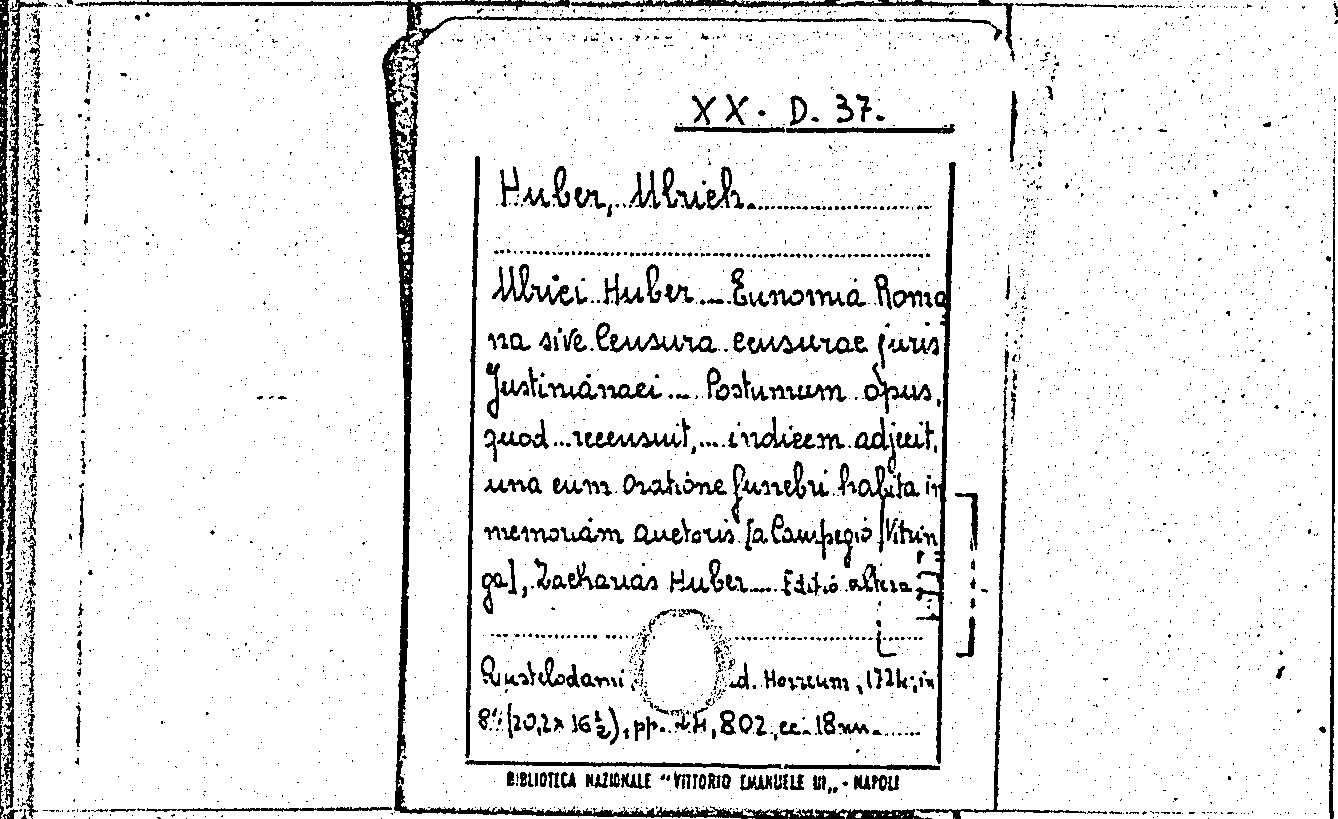 XX. D. 37.
Huber, Ulrich.
Ulrici Huber ... Eunomia Roma
na sive Censura censurae juris
Justinianaei ... Postumum opus,
quod ... recensuit, ... indicem adjecit,
una cum oratione funebri habita in
memoriam auctoris [a Campegio Vitrin
ga], Zacharias Huber ... Editio altera
Amstelodami, d. Horreum, 1724; in
8° (20,2 x 16 ½), pp. 802, cc. 18 nn.
BIBLIOTECA NAZIONALE "VITTORIO EMANUELE III„ - NAPOLI